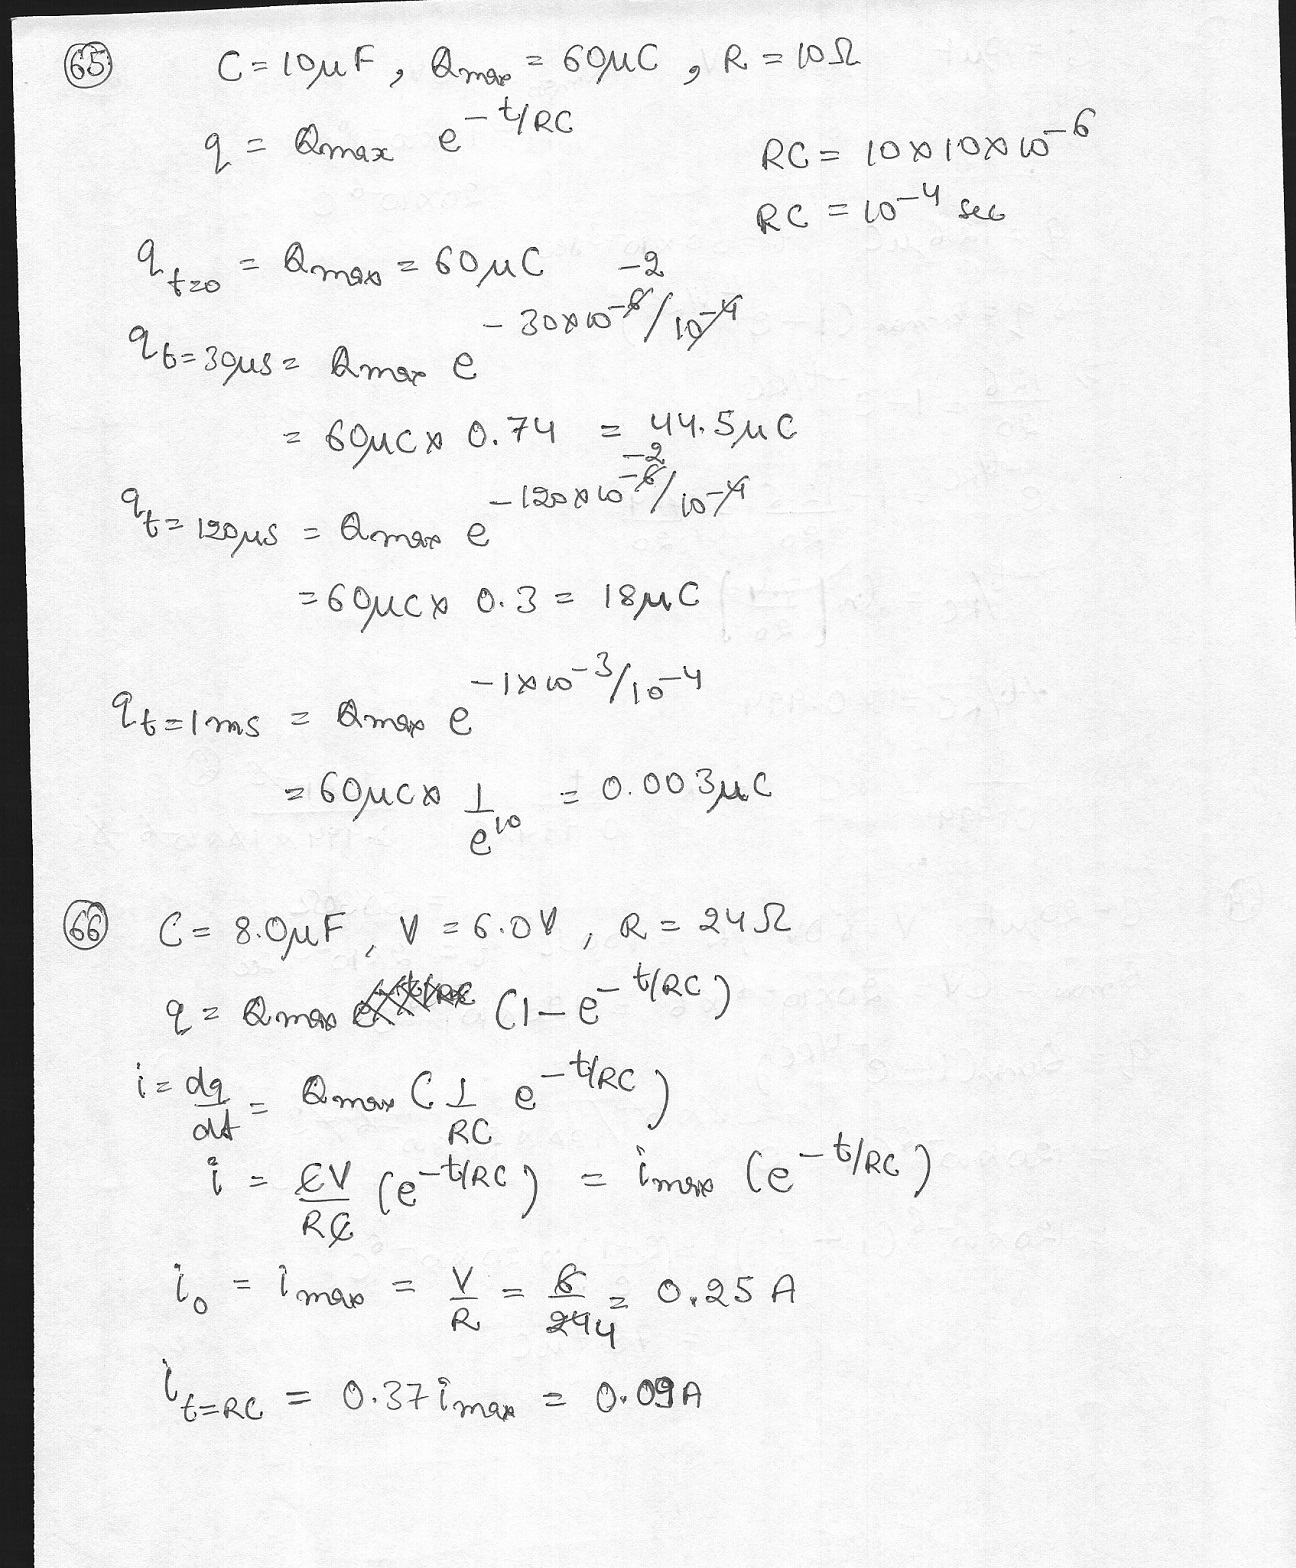 65 C = 10μF, Qmax = 60μC, R = 10Ω
q = Qmax e^-t/RC
RC = 10×10×10^-6
RC = 10^-4 sec
q t=0 = Qmax = 60μC
-2
q t=30μs = Qmax e^-30×10^-6/10^-4
= 60μC × 0.74 = 44.5μC
-2
q t=120μs = Qmax e^-120×10^-6/10^-4
= 60μC × 0.3 = 18μC
q t=1ms = Qmax e^-1×10^-3/10^-4
= 60μC × 1/e^10 = 0.003μC
66 C = 8.0μF, V = 6.0V, R = 24Ω
q = Qmax (1-e^-t/RC)
i = dq/dt = Qmax (1/RC e^-t/RC)
i = CV/RC (e^-t/RC) = imax (e^-t/RC)
i0 = imax = V/R = 6/24 4 = 0.25 A
i t=RC = 0.37 imax = 0.09A